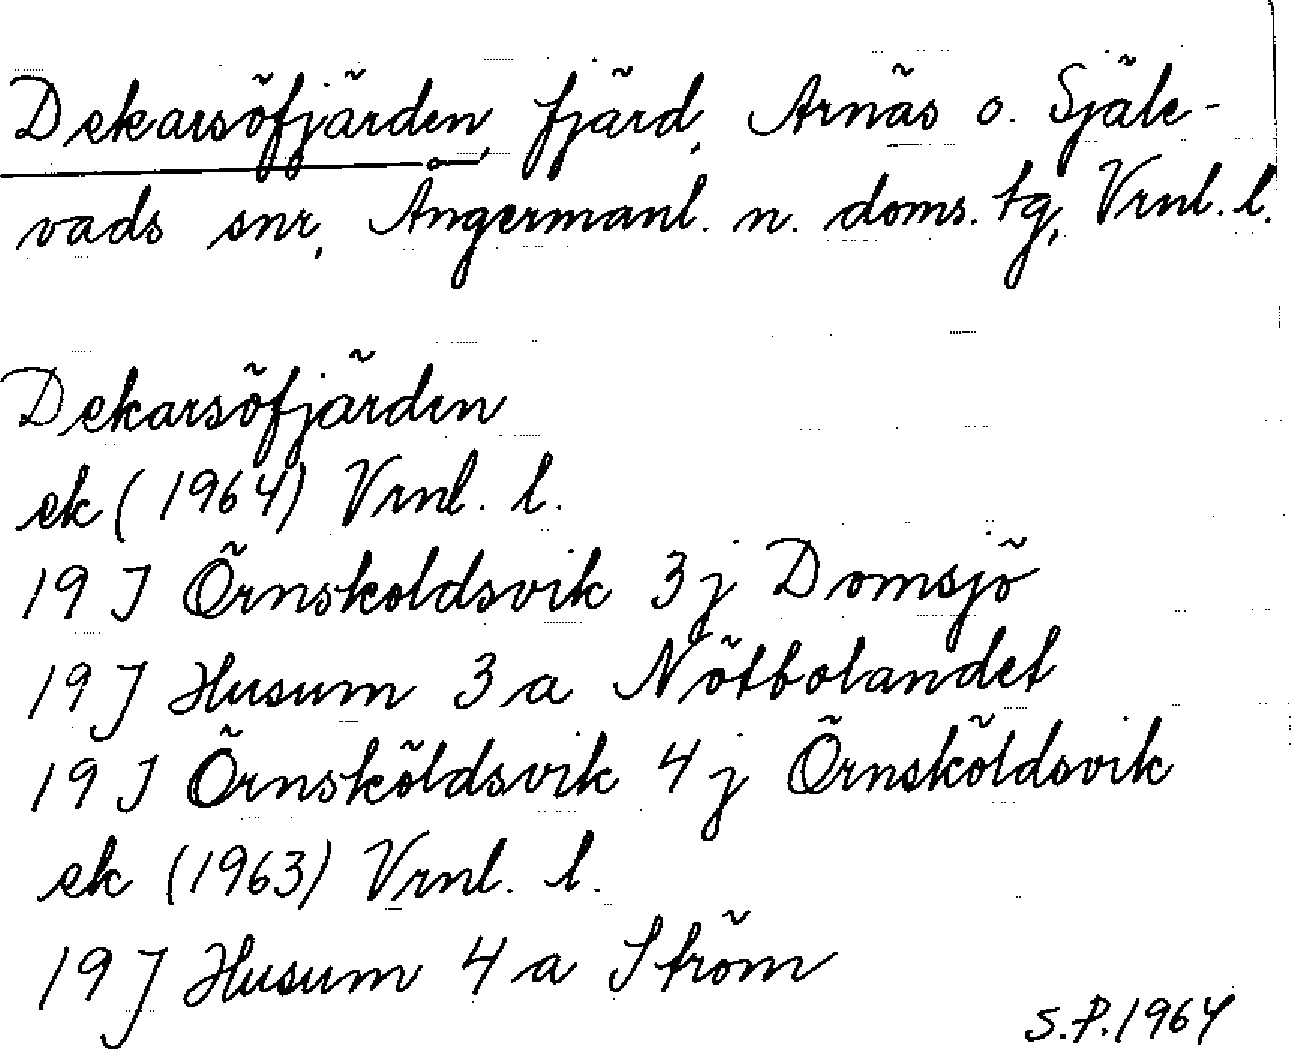 Dekarsöfjärden, fjärd, Arnäs o. Själe-
vads snr, Ångermanl. n. doms. tg, Vrnl. l.
Dekarsöfjärden
ek (1964) Vrnl. l.
19 I Örnskoldsvik 3 j Domsjö
19 J Husum 3 a Nötbolandet
19 I Örnsköldsvik 4 j Örnsköldsvik
ek (1963) Vrnl. l.
19 J Husum 4 a Ström
S.P. 1964